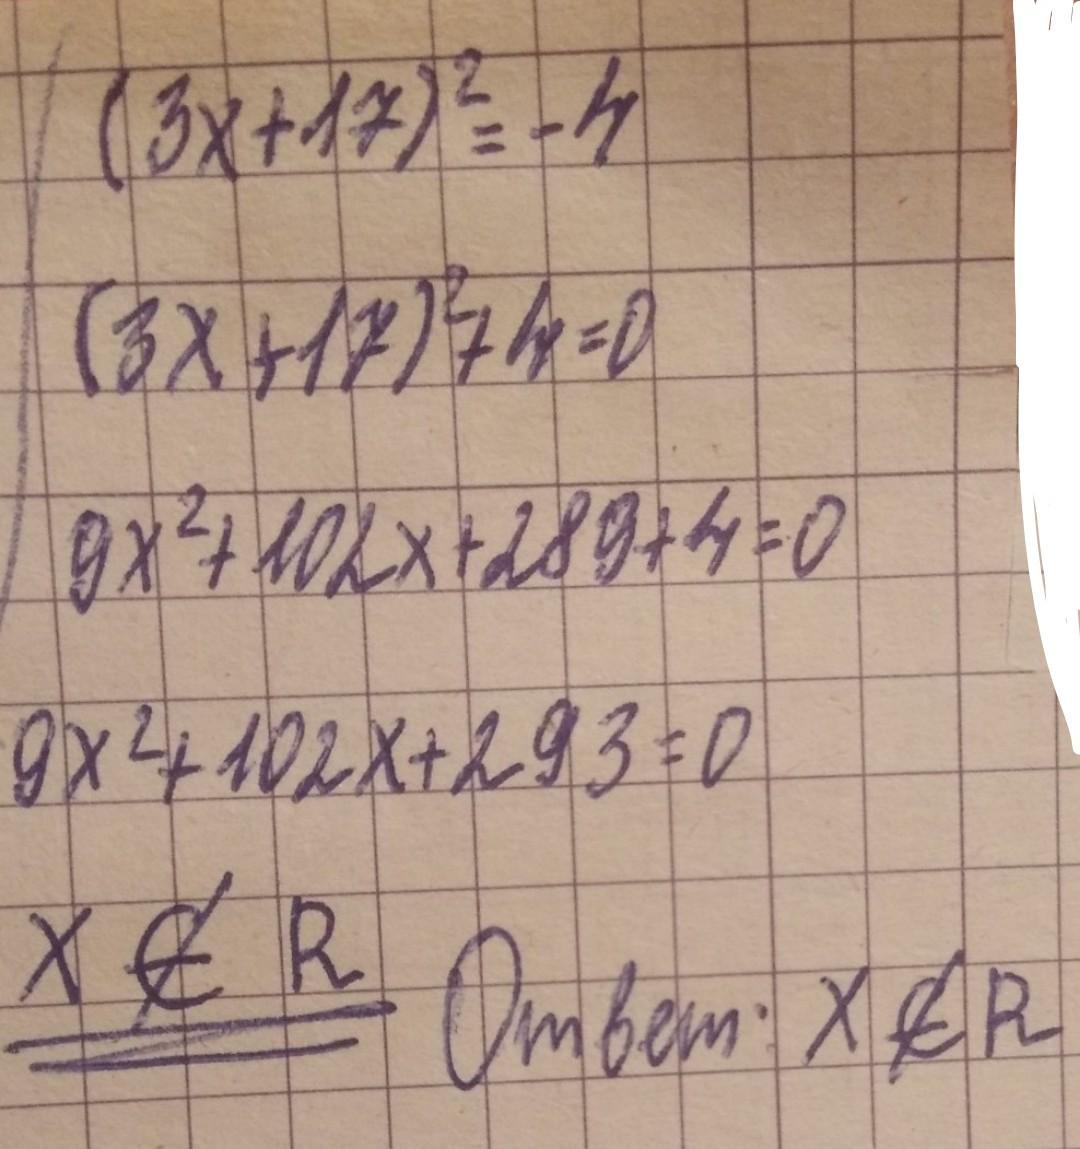 (3x+17)²=-4
(3x+17)²+4=0
9x²+102x+289+4=0
9x²+102x+293=0
x ∉ R Ответ: x ∉ R